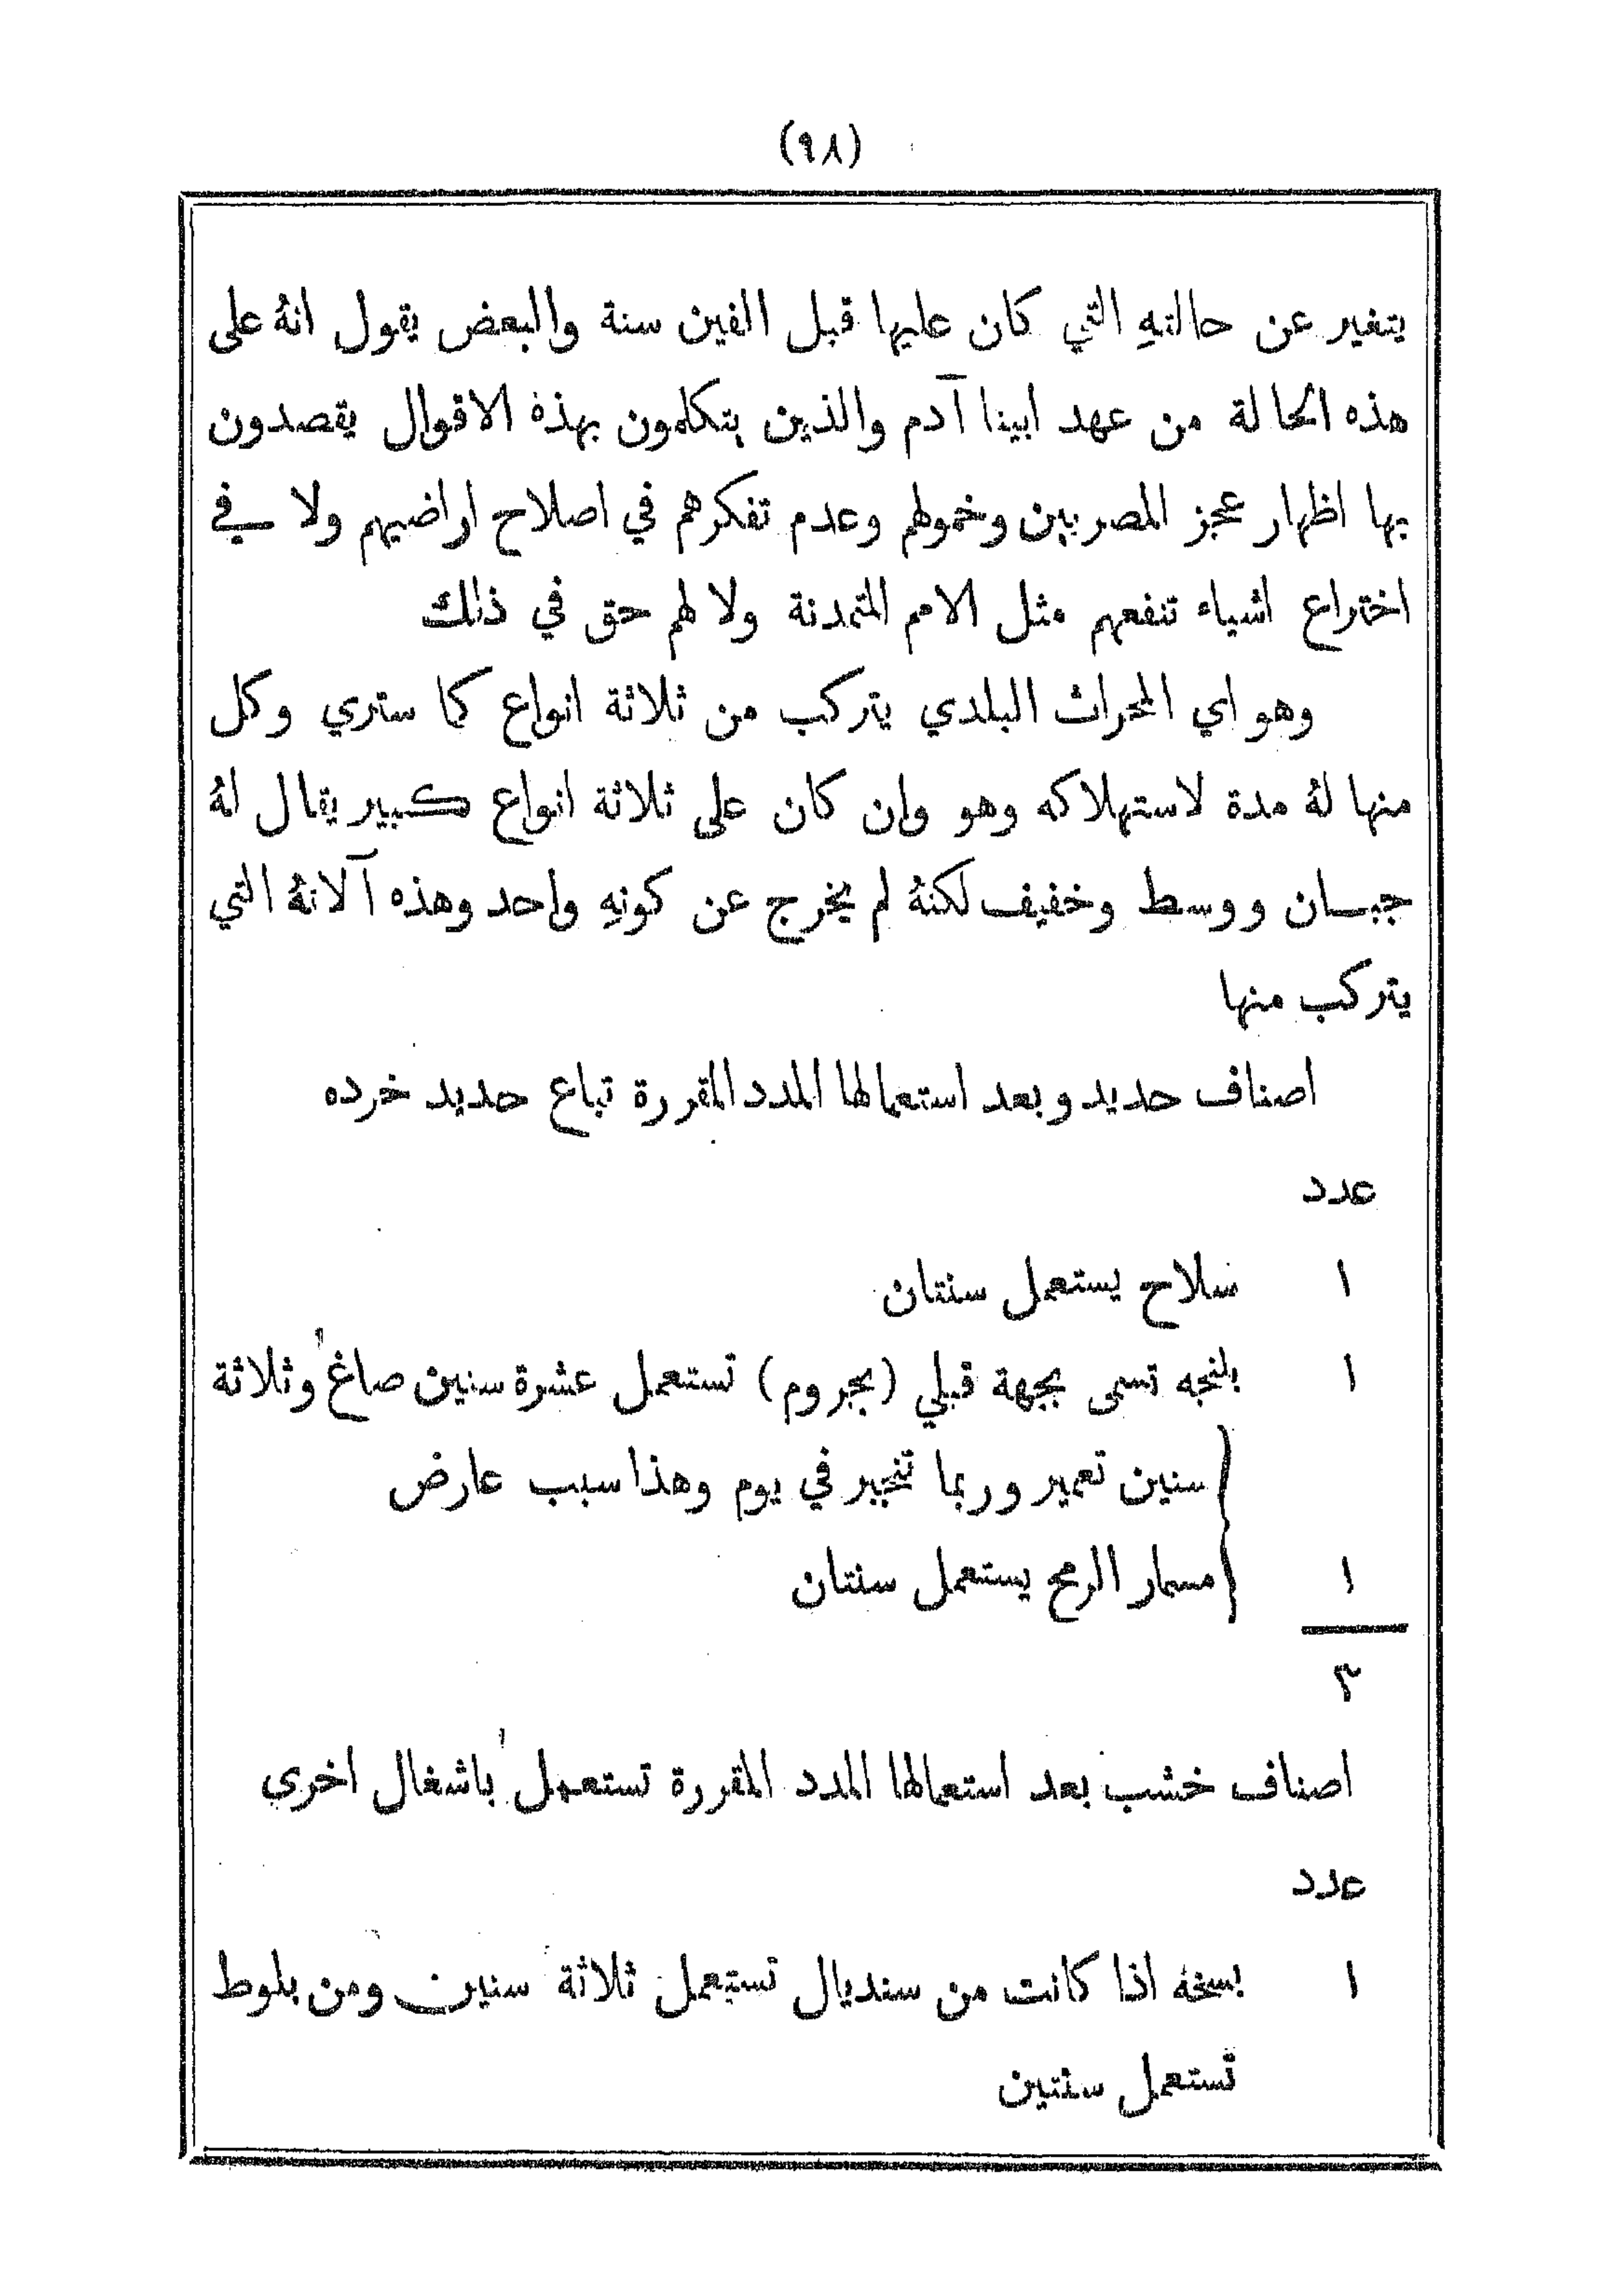 (٩٨)
يتغير عن حالتهِ التي كان عليها قبل الفين سنة والبعض يقول انهُ على
هذه الحالة من عهد ابينا آدم والذين يتكلمون بهذه الاقوال يقصدون
بها اظهار عجز المصريين وخمولهم وعدم تفكرهم في اصلاح اراضيهم ولا في
اختراع اشياء تنفعهم مثل الامم المتمدنة ولا لهم حق في ذلك
وهو اي المحراث البلدي يتركب من ثلاثة انواع كما ستري وكل
منها لهُ مدة لاستهلاكه وهو وان كان على ثلاثة انواع كبير يقال لهُ
جبسان ووسط وخفيف لكنهُ لم يخرج عن كونهِ واحد وهذه آلاتهُ التي
يتركب منها
اصناف حديد وبعد استعمالها المدد المقررة تباع حديد خرده
عدد
١ سلاح يستعمل سنتان
١ بلنجه تسمى بجهة قبلي (بجروم) تستعمل عشرة سنين صاغ وثلاثة
سنين تعمير وربما تنجبر في يوم وهذا سبب عارض
١ مسمار الرمح يستعمل سنتان
٣
اصناف خشب بعد استعمالها المدد المقررة تستعمل باشغال اخرى
عدد
١ بسخه اذا كانت من سنديال تستعمل ثلاثة سنين ومن بلوط
تستعمل سنتين